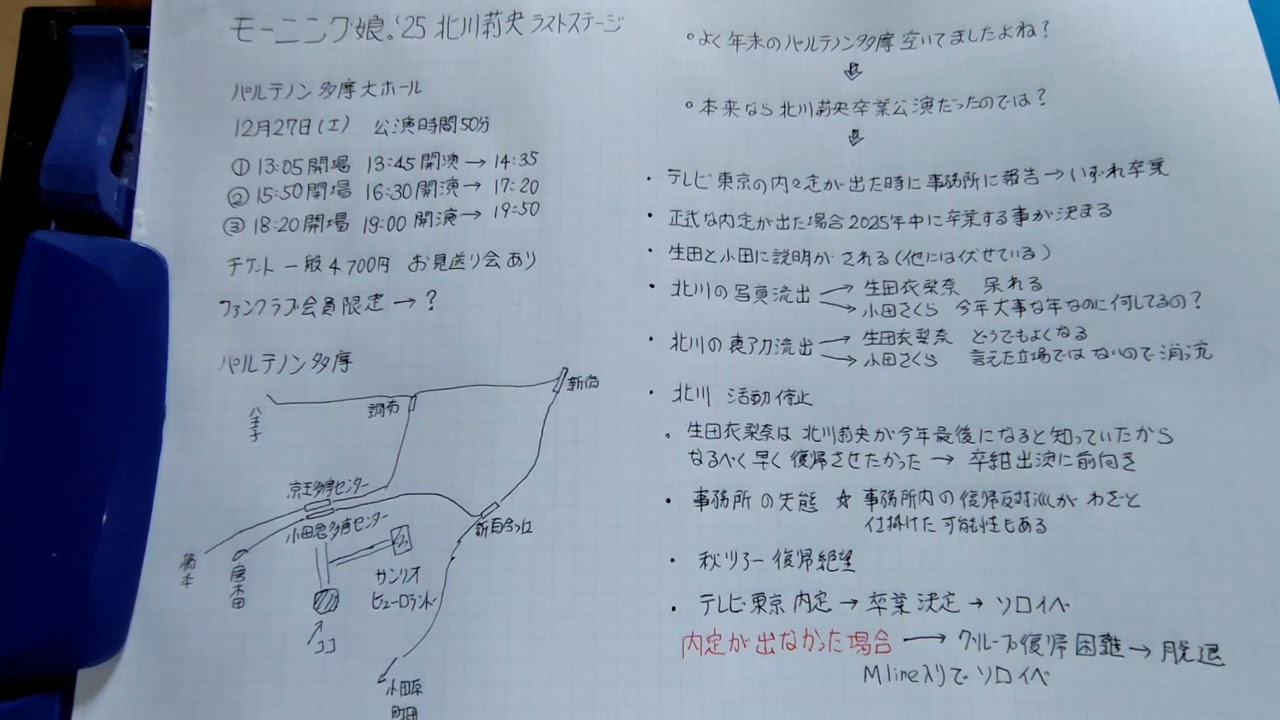 モーニング娘。'25 北川莉央 ラストステージ
パルテノン多摩大ホール
12月27日(土) 公演時間50分
① 13:05開場 13:45開演→14:35
② 15:50開場 16:30開演→17:20
③ 18:20開場 19:00開演→19:50
チケット 一般 4,700円 お見送り会あり
ファンクラブ会員限定→?
パルテノン多摩
新宿
調布
八王子
京王多摩センター
小田急多摩センター
新百合ヶ丘
橋本
唐木田
サンリオ
ピューロランド
ココ
小田原
町田
○よく年末のパルテノン多摩空いてましたよね?
○本来なら北川莉央卒業公演だったのでは?
・テレビ東京の内々定が出た時に事務所に報告→いずれ卒業
・正式な内定が出た場合2025年中に卒業する事が決まる
・生田と小田に説明がされる(他には伏せている)
・北川の写真流出→生田衣梨奈 呆れる
→小田さくら 今年大事な年なのに何してるの?
・北川の裏アカ流出→生田衣梨奈 どうでもよくなる
→小田さくら 言えた立場ではないので消沈
・北川 活動停止
・生田衣梨奈は北川莉央が今年最後になると知っていたから
なるべく早く復帰させたかった→卒コン出演に前向き
・事務所の失態 ☆事務所内の復帰反対派がわざと
仕掛けた可能性もある
・秋ツアー復帰絶望
・テレビ東京内定→卒業決定→ソロイベ
内定が出なかった場合→グループ復帰困難→脱退
M line入りでソロイベ